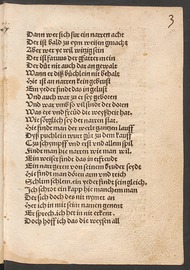 3
Dann wer sich für ein narren acht
Der ist bald zu eym weisen gmacht
Aber wer ye wil witzig sein
Der ist fatuus der gfatter mein
Der düt mir auch dar an gewalt
Wann er diß büchlein nit behalt
Hie ist an narren kein gebrust
Ein yeder findt das in gelust
Und auch war zu er sy geboren
Und war umb so vil sindt der doren
Was eer und freüd die weyßheit hat
Wie der narren stat
Hie findt man der werlt gantzen lauff
Diß büchlein wurt gut zu dem kauff
Czu schympff und ernst und allem spil
Findt man hie narren wie man wil
Ein weiser findt das in erfreudt
Ein narr gern von seinem bruder seydt
Hie findt man doren arm und reich
Schlim schlem ein yeder findt sein gleich
Ich schrot ein kapp hie manchem man
Der sich doch des nit nymet an
Het ich in mit sein namen genent
Er sprech ich het in nit erkent
Doch hoff ich das die weysen all